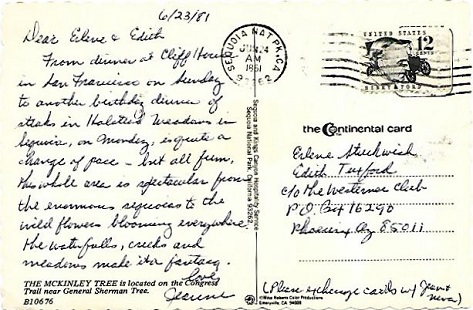 6/23/81
Dear Erlene & Edith
From dinner at Cliff House
in San Francisco on Sunday
to another birthday dinner of
steaks in Halsted Meadows in
Sequoia, on Monday, is quite a
change of pace - but all fun,
this whole area is spectacular from
the enormous sequoias to the
wild flowers blooming everywhere.
The waterfalls, creeks and
meadows make it a fantasy.
Love
Jeanne
THE MCKINLEY TREE is located on the Congress
Trail near General Sherman Tree.
B10676
Sequoia and Kings Canyon Hospitality Service
Sequoia National Park, California 93262
SEQUOIA NAT PK. CA
JUN 24
AM
1981
93262
UNITED STATES
12
CENTS
HENRY FORD
the Continental card
Erlene
Edith Tuxford
c/o The Westerner Club
P.O. Box 16290
Phoenix, Az 85011
(Please exchange cards w/ Jean &
Neva)
©Mike Roberts Color Productions
Emeryville, CA 94608